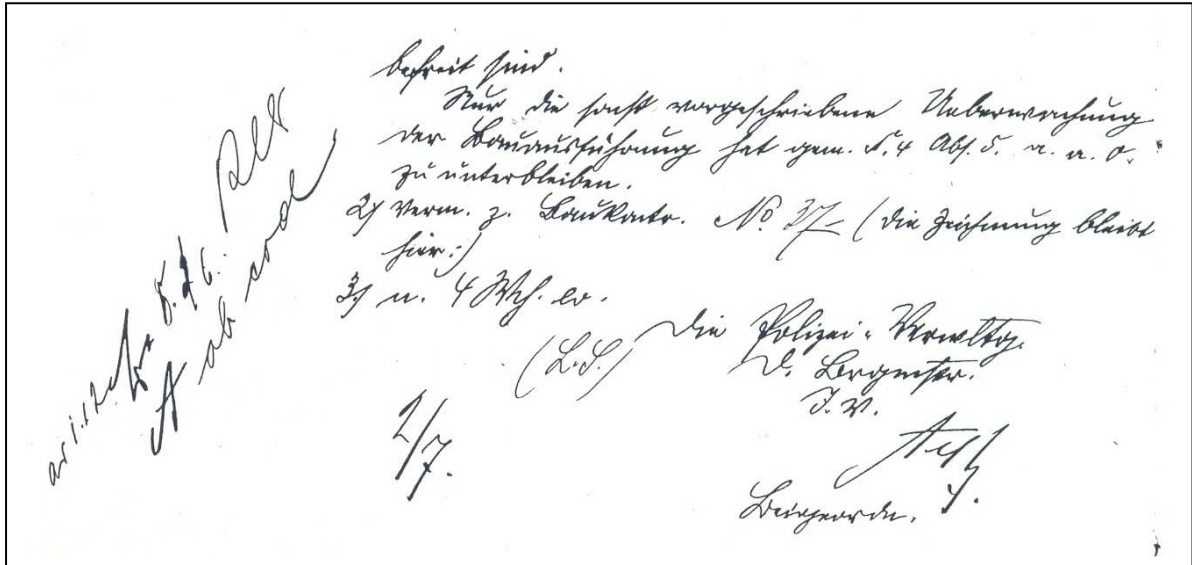 befreit sind.
Nur die sonst vorgeschriebene Ueberwachung
der Bauausführung hat gem. §. 4 Abs. 5. a. a. O.
zu unterbleiben.
2) Verm. z. Baukontr. No 37 (die Zeichnung bleibt
hier:)
3) n. 4 Wch. er.
Die Polizei-Verwltg.
D. Brgmstr.
(L.S.)
J. V.
2/7.
Beigeordn.